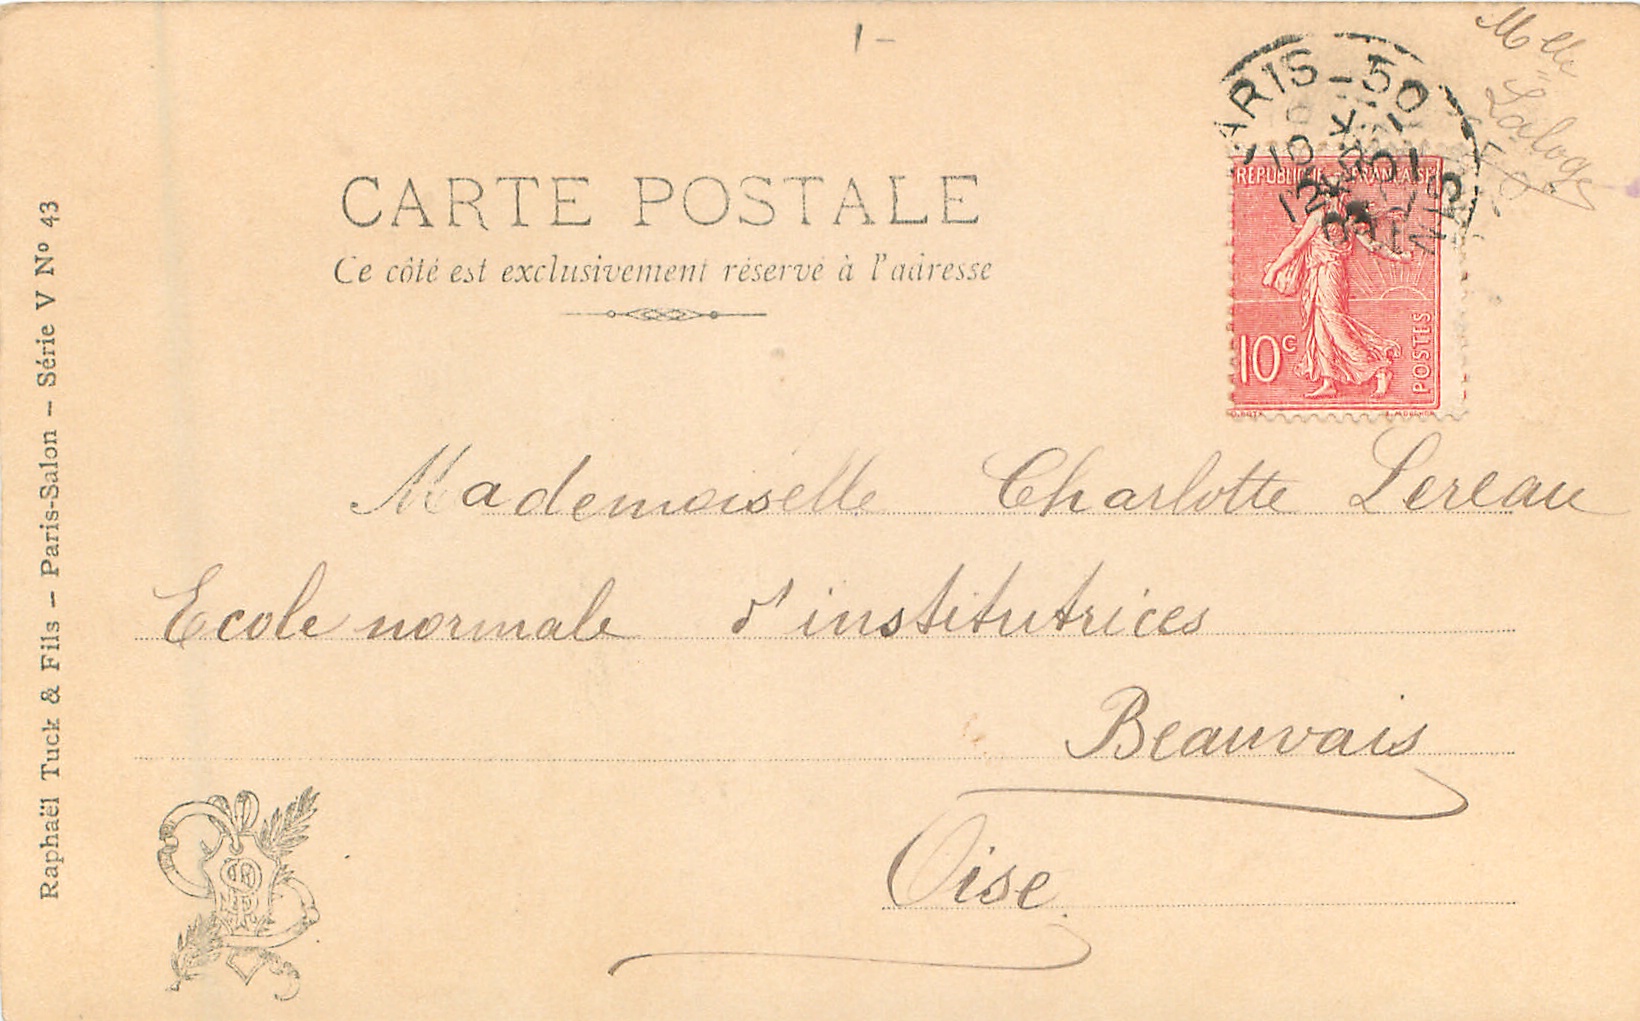 1-
Mlle
CARTE POSTALE
Ce côté est exclusivement réservé à l'adresse
PARIS - 50
RÉPUBLIQUE FRANÇAISE
10c
POSTES
Mademoiselle Charlotte Lereau
Ecole normale d'institutrices
Beauvais
Oise
Raphaël Tuck & Fils – Paris-Salon – Série V Nº 43